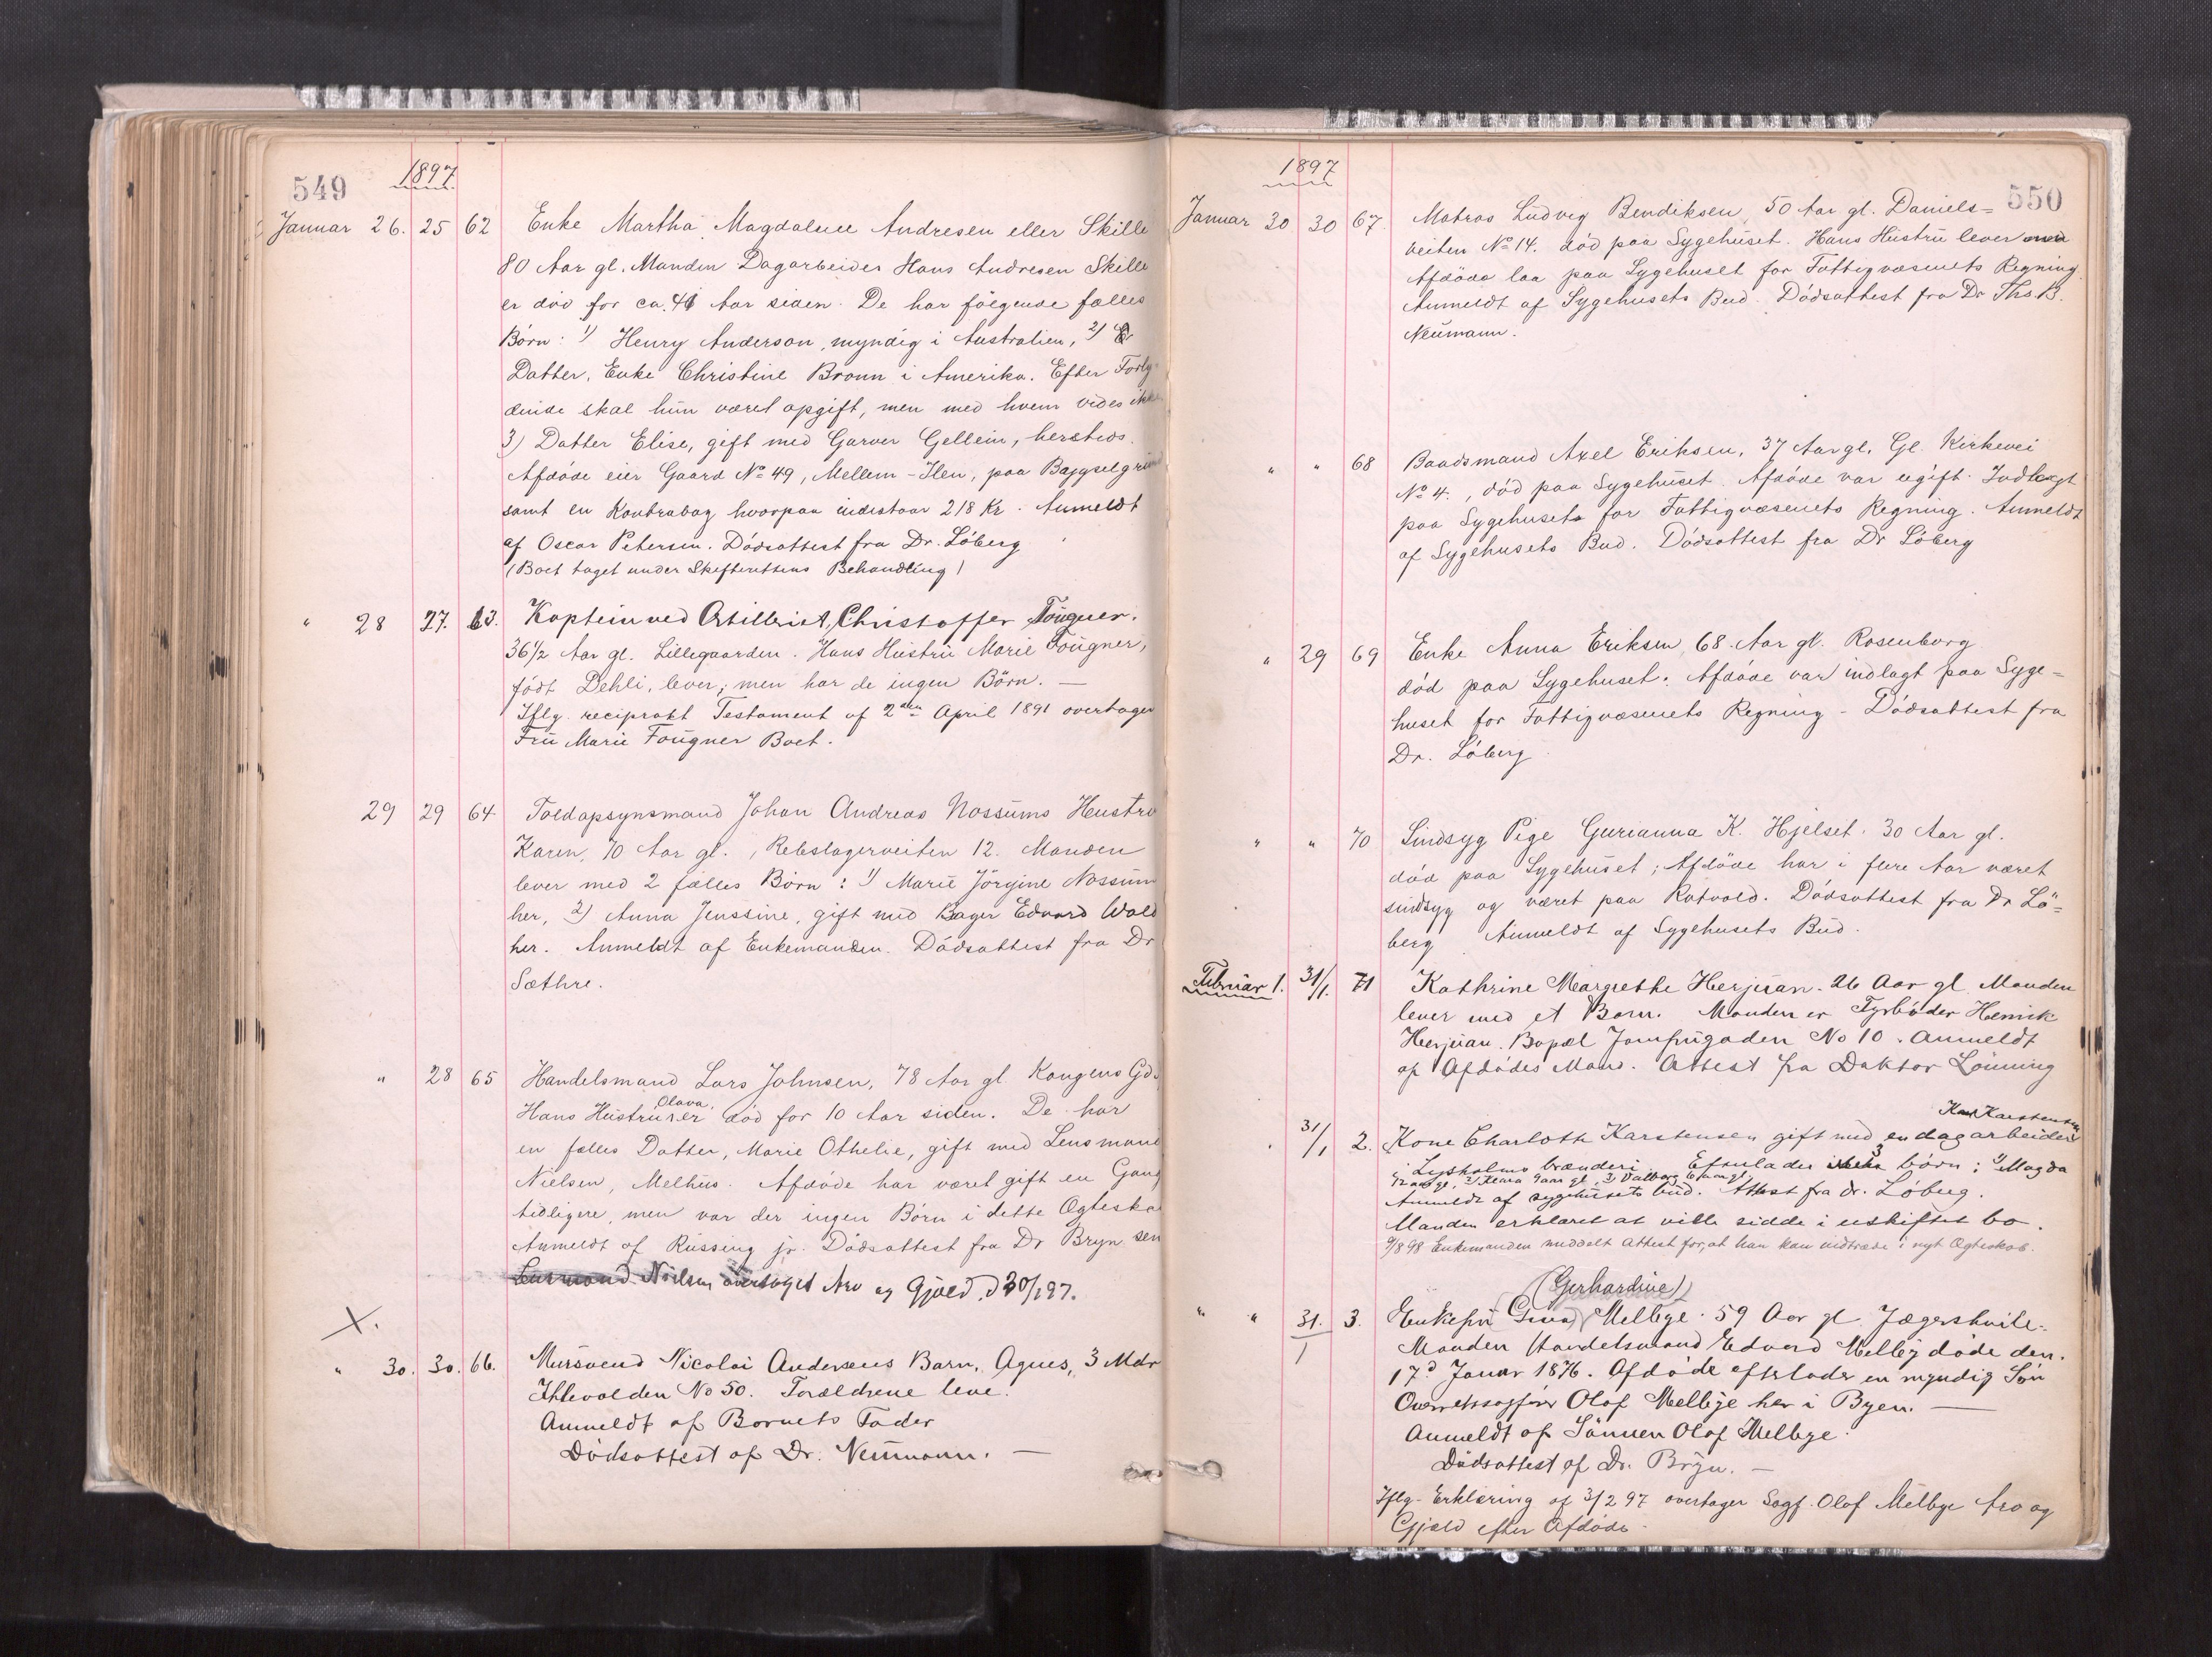 549
1897
Januar 26. 25 62 Enke Martha Magdalene Andresen eller Skille
80 Aar gl. Manden Dagarbeider Hans Andresen Skille
er död for ca. 41 Aar siden. De har fölgende fælles
Börn: 1) Henry Anderson, myndig i Australien, 2)
Datter, Enke Christine Bronn i Amerika. Efter Forly-
dende skal hun været opgift, men med hvem vides ikke
3) Datter Elise, gift med Garver Gellein, hersteds.
Afdöde eier Gaard No 49, Mellem-Ilen, paa Bagselgrund
samt en Kontrabog hvorpaa indestaar 218 Kr. Anmeldt
af Oscar Petersen. Dödsattest fra Dr. Löberg
(Boet taget under Skifterettens Behandling)
" 28 27. 63. Kaptein ved Artilleriet, Christoffer Fougner.
36 1/2 Aar gl. Lillegaarden. Hans Hustru Marie Fougner,
födt Dehli, lever; men har de ingen Börn. —
Iflg. reciprokt Testament af 2den April 1891 overtager
Fru Marie Fougner Boet.
29 29 64 Toldopsynsmand Johan Andreas Nossums Hustru
Karen, 70 Aar gl., Rebslagerveiten 12. Manden
lever med 2 fælles Börn: 1) Marie Jörgine Nossum
her, 2) Anna Jenssine, gift med Bager Edvard Wold
her. Anmeldt af Enkemanden. Dödsattest fra Dr
Sæthre.
" 28 65 Handelsmand Lars Johnsen, 78 Aar gl. Kongens Gd.
Olava,
Hans Hustru er död for 10 Aar siden. De har
en fælles Datter, Marie Othelie, gift med Lensmand
Nielsen, Melhus. Afdöde har været gift en Gang
tidligere, men var der ingen Börn i dette Ægteskab
Anmeldt af Russing jr. Dödsattest fra Dr Bryn sen
Lensmand Nielsen overtaget Arv og Gjæld d 30/1 97.
X.
" 30. 30. 66. Mursvend Nicolai Andersens Barn, Agnes, 3 Mdr
Ihlevolden No 50. Forældrene leve.
Anmeldt af Barnets Fader
Dödsattest af Dr. Neumann. —
550
1897
Januar 30 30 67. Matros Ludvig Bendiksen, 50 Aar gl. Daniels=
veiten No 14. död paa Sygehuset. Hans Hustru lever
Afdöde laa paa Sygehuset for Fattigvæsenets Regning.
Anmeldt af Sygehusets Bud. Dödsattest fra Dr Ths. B.
Neumann.
" " 68 Baadsmand Axel Eriksen, 37 Aar gl. Gl. Kirkevei
No 4., död paa Sygehuset. Afdöde var ugift. Indlagt
paa Sygehusets for Fattigvæsenets Regning. Anmeldt
af Sygehusets Bud. Dödsattest fra Dr Löberg
" 29 69 Enke Anna Eriksen, 68 Aar gl. Rosenborg
död paa Sygehuset. Afdöde var indlagt paa Syge=
huset for Fattigvæsenets Regning - Dödsattest fra
Dr. Löberg
" " 70 Sindsyg Pige Gurianna K. Hjelset. 30 Aar gl.
död paa Sygehuset; Afdöde har i flere Aar været
sindsyg og været paa Rotvold. Dödsattest fra Dr Lö=
berg Anmeldt af Sygehusets Bud.
Februar 1. 31/1. 71 Kathrine Margrethe Herjuan. 26 Aar gl. Manden
lever med et Barn. Manden er Fyrböder Henrik
Herjuan. Bopæl Jomfrugaden No 10. Anmeldt
af Afdödes Mand. Attest fra Doktor Lönning
Karl Karstensen
31/1 2. Kone Charlotte Karstensen gift med en dagarbeider
i Lysholms brænderi. Efterlader 3 börn: 1) Magda
12 aar gl, 2) Klara 9 aar gl, 3) Valborg 6 aar gl,
Anmeldt af sygehusets bud. Attest fra dr. Löberg.
Manden erklæret at ville sidde i uskiftet bo.
9/8 98 Enkemanden meddelt Attest for, at han kan indtræde i nyt Ægteskab.
(Gerhardine)
" " 31./1 3. Enkefru Mellbye. 59 Aar gl. Jægershvile.
Manden Handelsmand Edvard Mellby döde den.
17d Januar 1876. Afdöde efterlader en myndig Sön
Overretssagförer Olaf Mellbye her i Byen. —
Anmeldt af Sönnen Olaf Melbye.
Dödsattest af Dr. Bryn. —
Iflg. Erklæring af 3/2 97 overtager Sagf. Olaf Mellbye Arv og
Gjæld efter Afdöde.